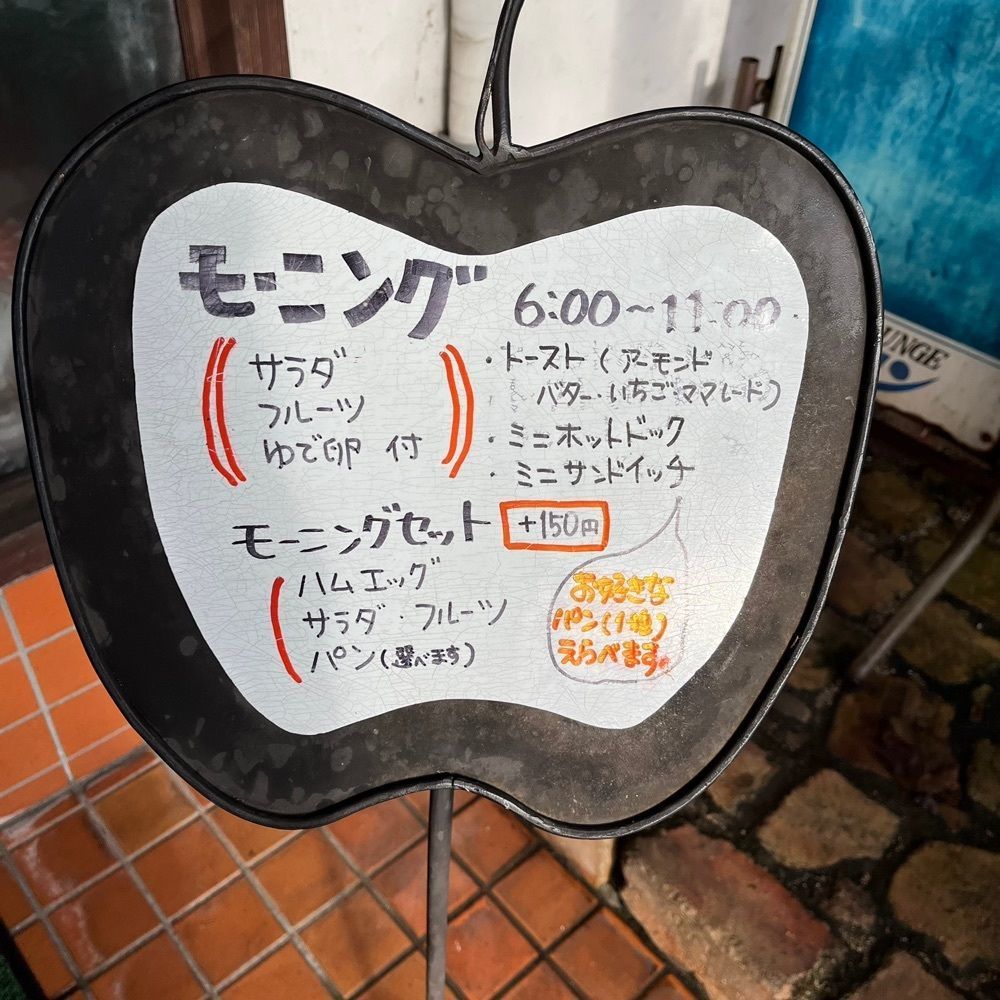 モーニング 6:00～11:00
サラダ
フルーツ
ゆで卵 付
・トースト(アーモンド
バター・いちご・ママレード)
・ミニホットドック
・ミニサンドイッチ
モーニングセット +150円
ハムエッグ
サラダ・フルーツ
パン(選べます)
お好きな
パン(1種)
えらべます。
UNGE